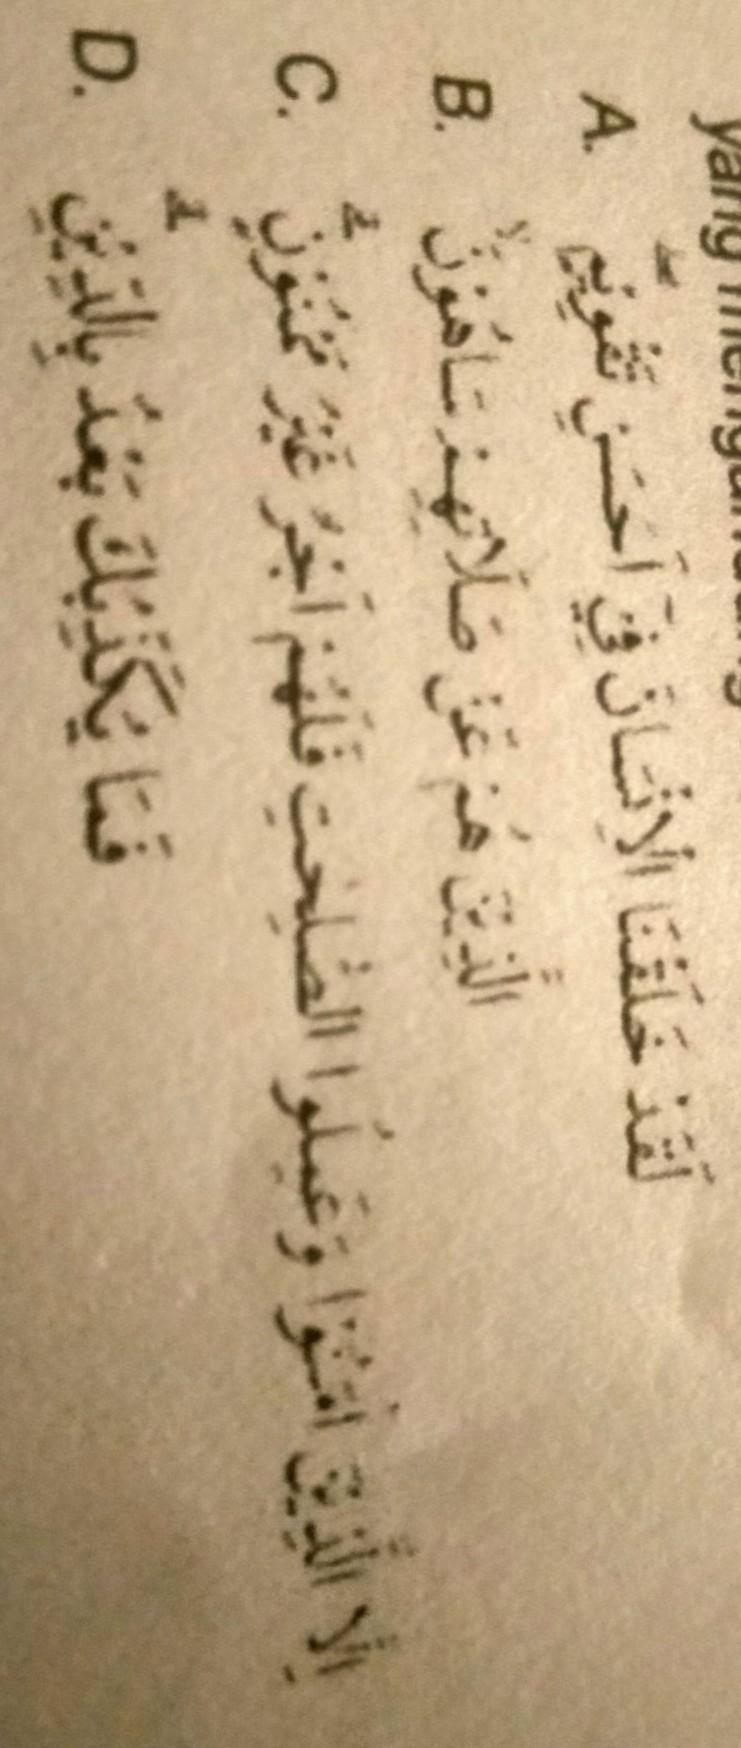 yang mengandung
A. لَقَدْ خَلَقْنَا الْاِنْسَانَ فِيْٓ اَحْسَنِ تَقْوِيْمٍۖ
B. الَّذِيْنَ هُمْ عَنْ صَلَاتِهِمْ سَاهُوْنَۙ
C. اِلَّا الَّذِيْنَ اٰمَنُوْا وَعَمِلُوا الصّٰلِحٰتِ فَلَهُمْ اَجْرٌ غَيْرُ مَمْنُوْنٍۗ
D. فَمَا يُكَذِّبُكَ بَعْدُ بِالدِّيْنِۗ